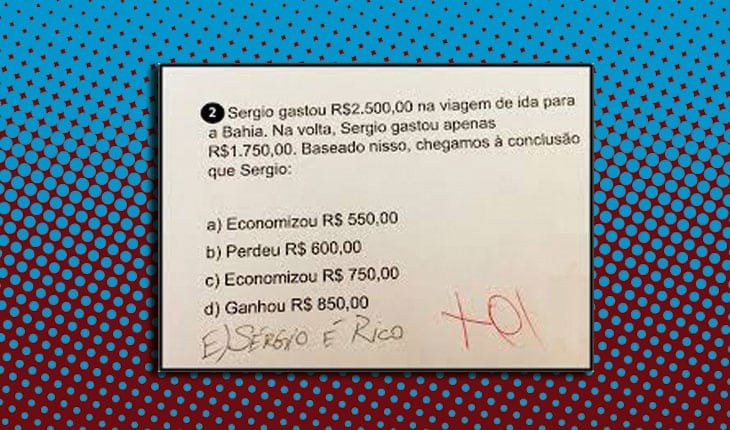 2 Sergio gastou R$2.500,00 na viagem de ida para
a Bahia. Na volta, Sergio gastou apenas
R$1.750,00. Baseado nisso, chegamos à conclusão
que Sergio:
a) Economizou R$ 550,00
b) Perdeu R$ 600,00
c) Economizou R$ 750,00
d) Ganhou R$ 850,00
E) SÉRGIO É RICO